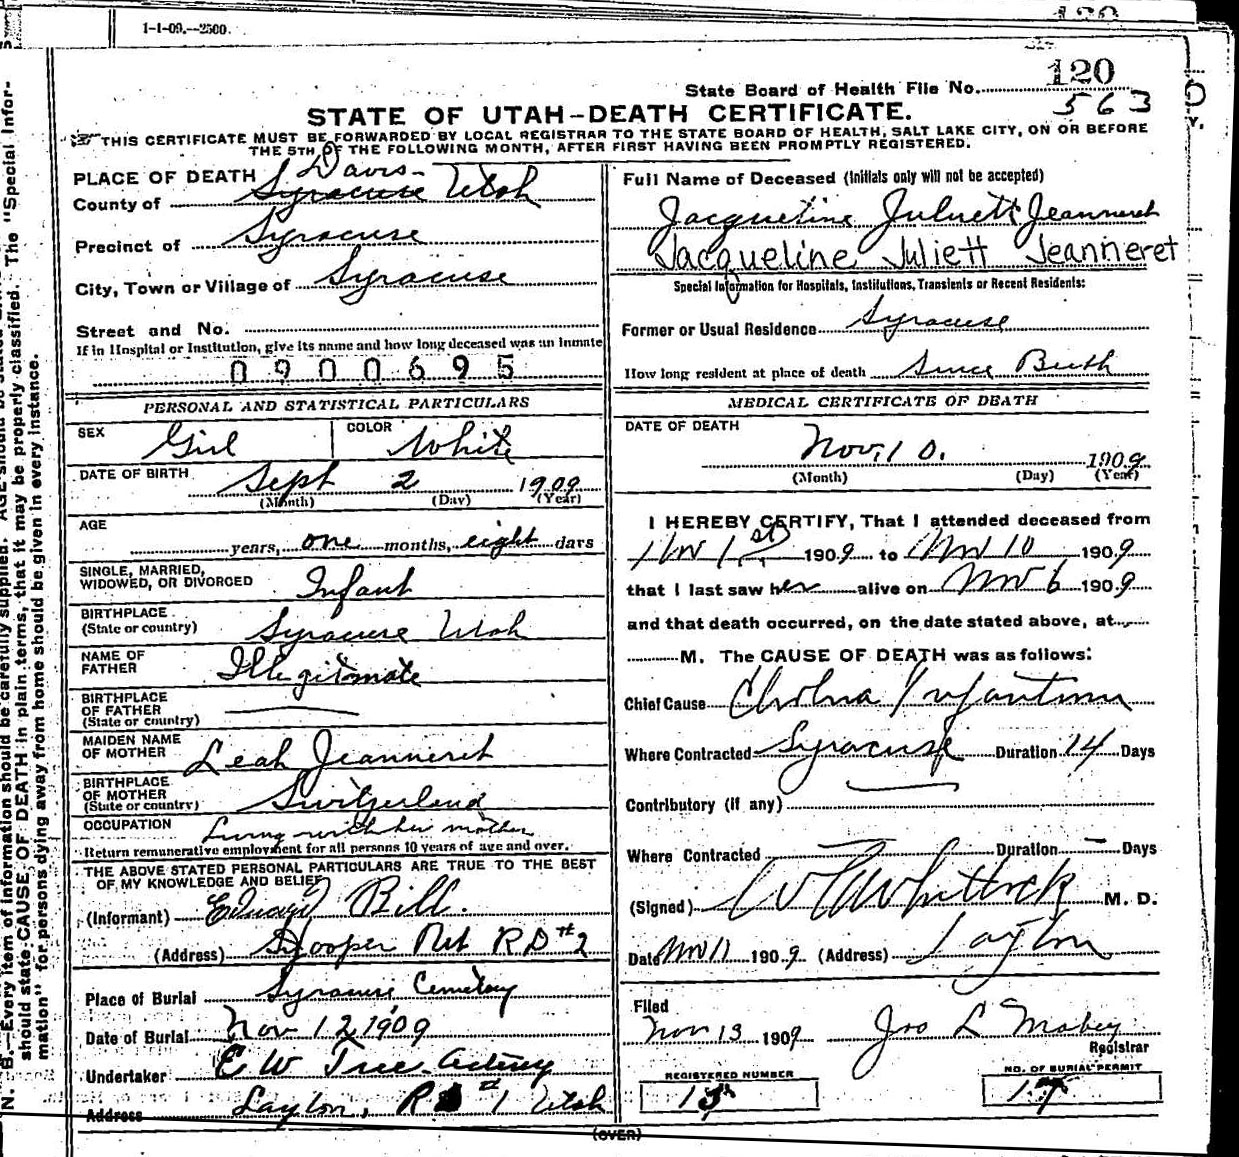 1-1-09.--2500.
State Board of Health File No. 120
563
STATE OF UTAH-DEATH CERTIFICATE.
THIS CERTIFICATE MUST BE FORWARDED BY LOCAL REGISTRAR TO THE STATE BOARD OF HEALTH, SALT LAKE CITY, ON OR BEFORE
THE 5TH OF THE FOLLOWING MONTH, AFTER FIRST HAVING BEEN PROMPTLY REGISTERED.
PLACE OF DEATH Davis
County of Syracuse Utah
Precinct of Syracuse
City, Town or Village of Syracuse
Street and No.
If in Hospital or Institution, give its name and how long deceased was an inmate
0900695
PERSONAL AND STATISTICAL PARTICULARS
SEX Girl COLOR White
DATE OF BIRTH Sept 2 1909
(Month) (Day) (Year)
AGE
years, one months, eight days
SINGLE, MARRIED,
WIDOWED, OR DIVORCED Infant
BIRTHPLACE
(State or country) Syracuse Utah
NAME OF
FATHER Illegitmate
BIRTHPLACE
OF FATHER
(State or country)
MAIDEN NAME
OF MOTHER Leah Jeanneret
BIRTHPLACE
OF MOTHER
(State or country) Switzerland
OCCUPATION Living with her mother
Return remunerative employment for all persons 10 years of age and over.
THE ABOVE STATED PERSONAL PARTICULARS ARE TRUE TO THE BEST
OF MY KNOWLEDGE AND BELIEF
(Informant) Edward Bill.
(Address) Hooper RD #2
Place of Burial Syracuse Cemetery
Date of Burial Nov 12 1909
Undertaker E W Tree acting
Address Layton, R #1 Utah
Full Name of Deceased (Initials only will not be accepted)
Jacqueline Juliett Jeanneret
Jacqueline Juliett Jeanneret
Special Information for Hospitals, Institutions, Transients or Recent Residents:
Former or Usual Residence Syracuse
How long resident at place of death Since Birth
MEDICAL CERTIFICATE OF DEATH
DATE OF DEATH
Nov. 10. 1909
(Month) (Day) (Year)
I HEREBY CERTIFY, That I attended deceased from
Nov 1st 1909 to Nov 10 1909
that I last saw her alive on Nov 6 1909
and that death occurred, on the date stated above, at
M. The CAUSE OF DEATH was as follows:
Chief Cause Cholera Infantum
Where Contracted Syracuse Duration 14 Days
Contributory (if any)
Where Contracted Duration — Days
(Signed) Whitlock M. D.
Date Nov 11 1909 (Address) Layton
Filed
Nov 13 1909 Jos L Mabey
Registrar
REGISTERED NUMBER
NO. OF BURIAL PERMIT
(OVER)
N. B.—Every item of information should be carefully supplied. AGE should be stated
should state CAUSE OF DEATH in plain terms, that it may be properly classified. The "Special Infor-
mation" for persons dying away from home should be given in every instance.